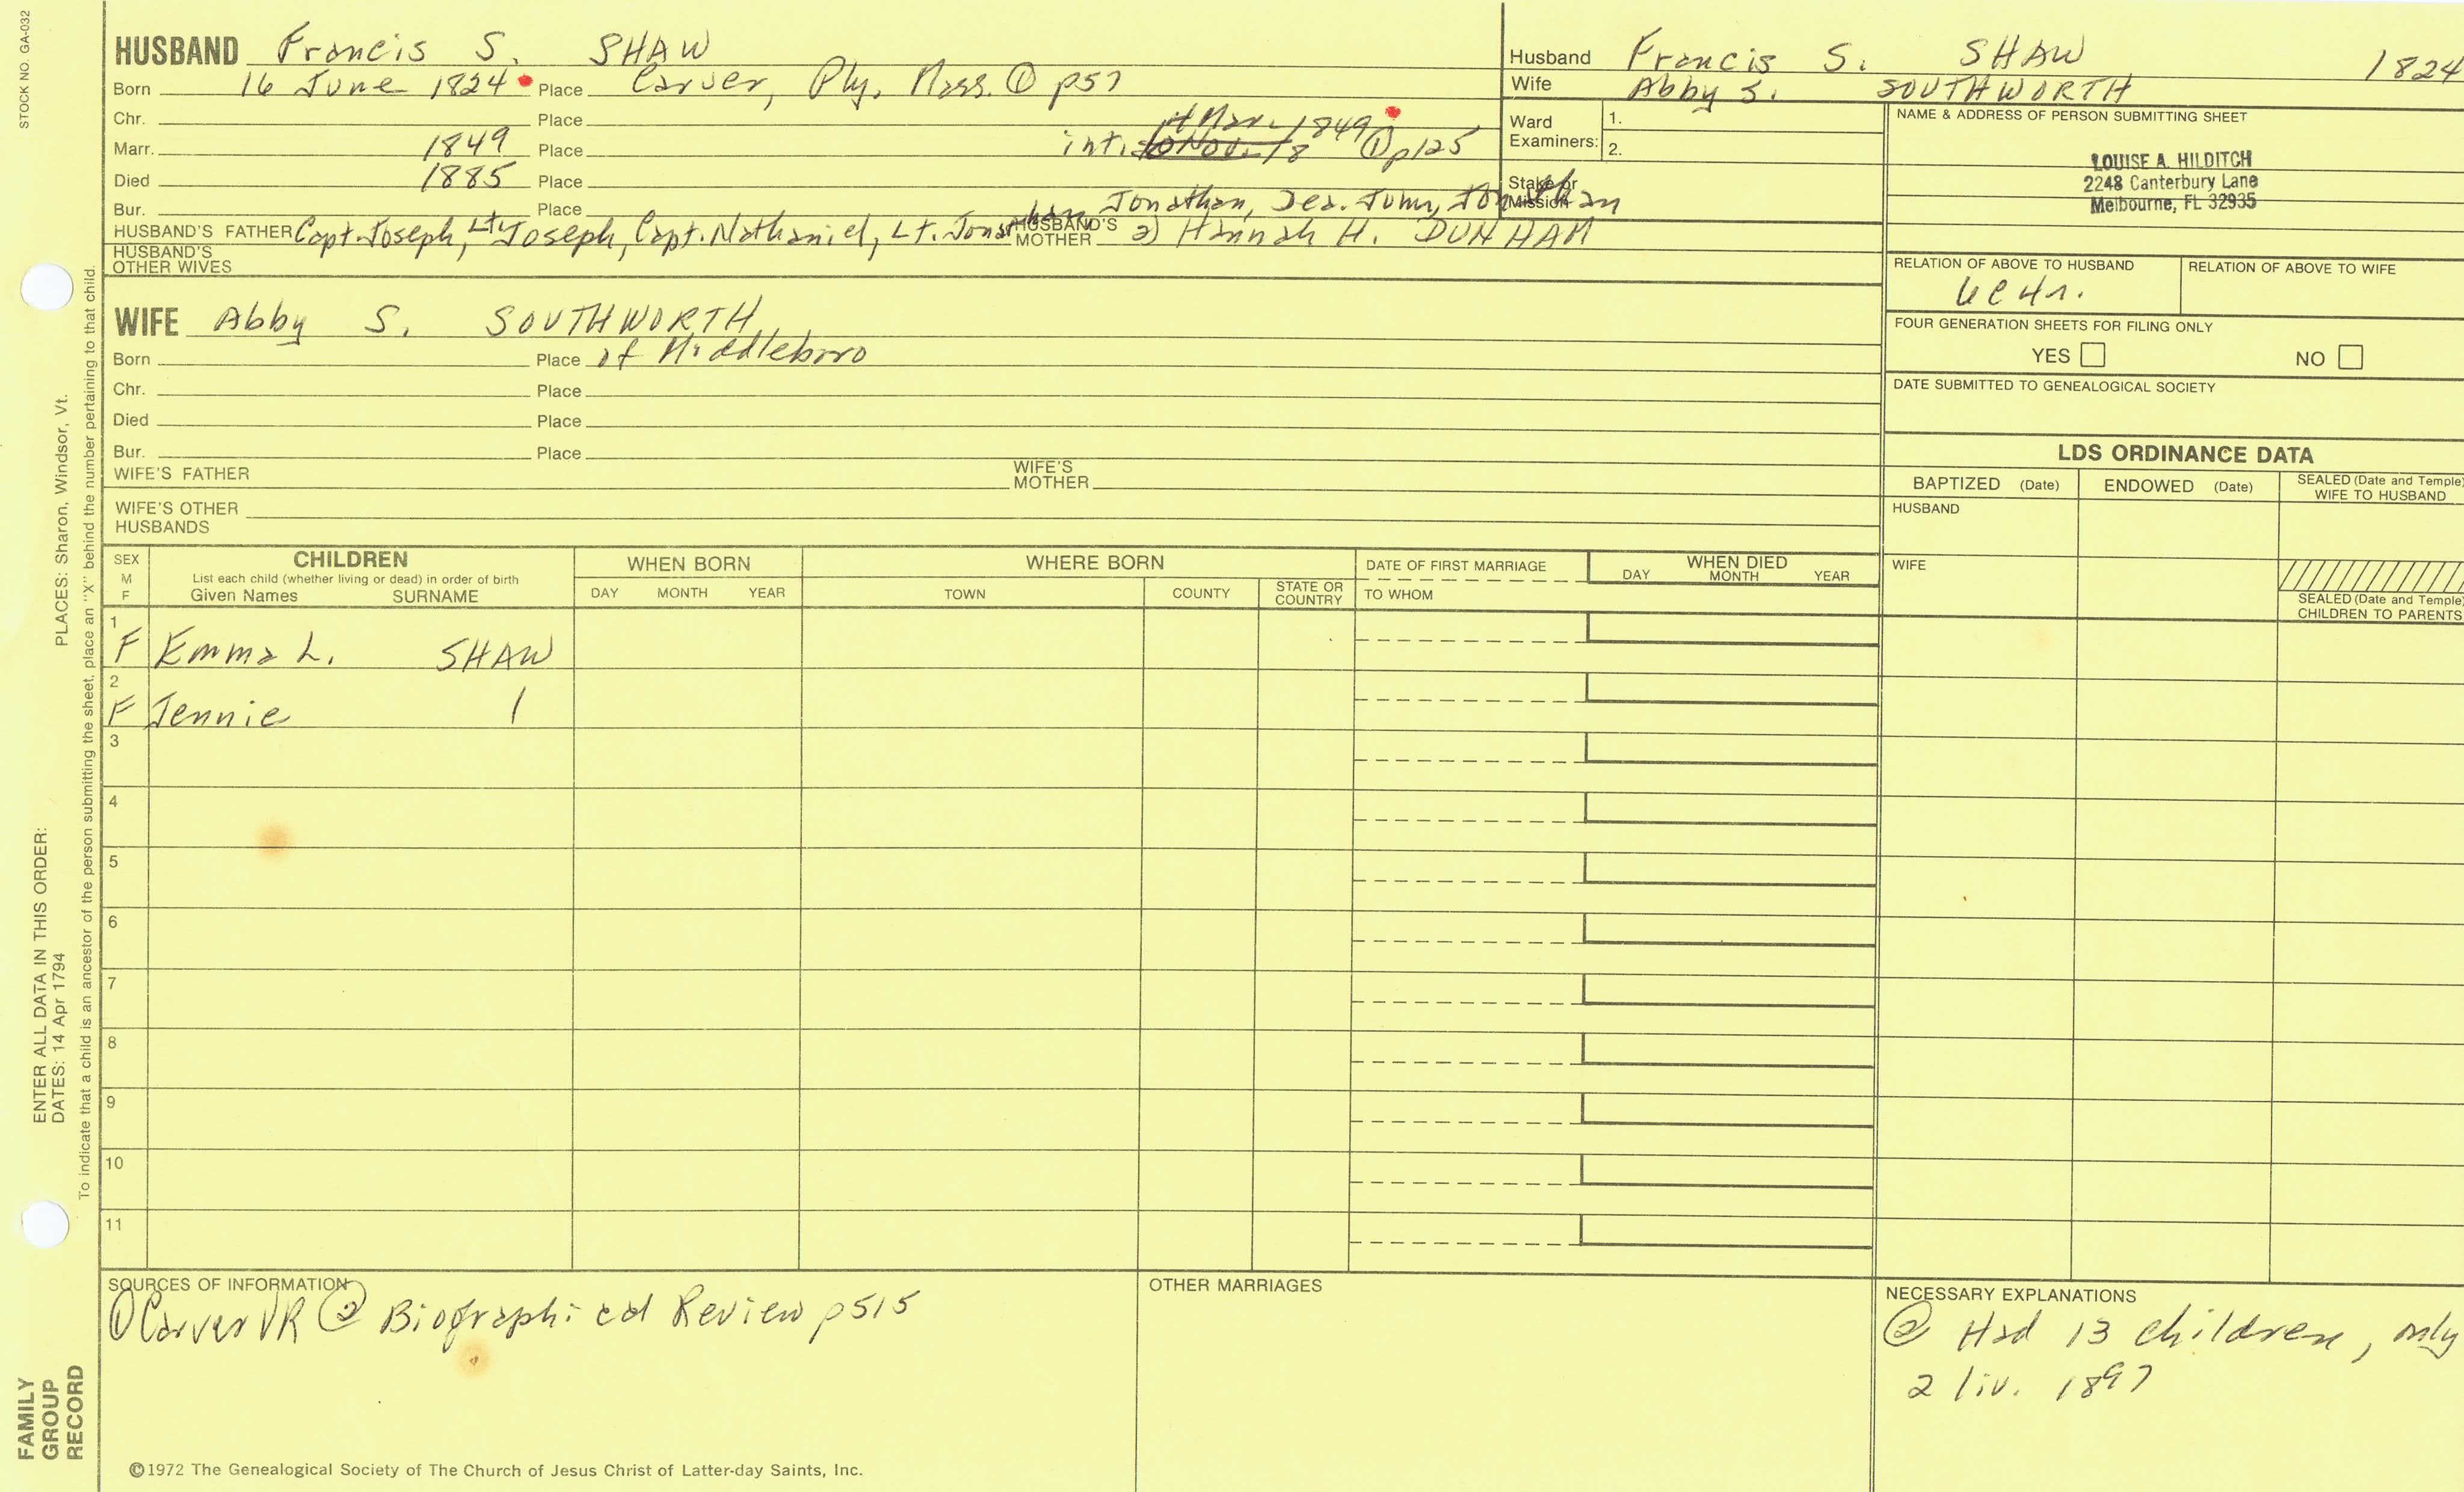 STOCK NO. GA-032
HUSBAND Francis S. SHAW
Born 16 June 1824 Place Carver, Ply, Mass. ① p57
Chr. Place
Marr. 1849 Place int. Mar 1849 ① p125
Died 1885 Place
Bur. Place
HUSBAND'S FATHER Capt. Joseph, Lt. Joseph, Capt. Nathaniel, Lt. Jonathan, Jonathan, Jonathan
HUSBAND'S MOTHER 2) Hannah H. DUNHAM
HUSBAND'S OTHER WIVES
Husband Francis S. SHAW 1824
Wife Abby S. SOUTHWORTH
Ward Examiners: 1.
2.
Stake or Mission
NAME & ADDRESS OF PERSON SUBMITTING SHEET
LOUISE A. HILDITCH
2248 Canterbury Lane
Melbourne, FL 32935
RELATION OF ABOVE TO HUSBAND RELATION OF ABOVE TO WIFE
FOUR GENERATION SHEETS FOR FILING ONLY
YES NO
DATE SUBMITTED TO GENEALOGICAL SOCIETY
WIFE Abby S. SOUTHWORTH
Born Place of Middleboro
Chr. Place
Died Place
Bur. Place
WIFE'S FATHER WIFE'S MOTHER
WIFE'S OTHER HUSBANDS
LDS ORDINANCE DATA
BAPTIZED (Date) ENDOWED (Date) SEALED (Date and Temple) WIFE TO HUSBAND
HUSBAND
WIFE
SEALED (Date and Temple) CHILDREN TO PARENTS
SEX M F
CHILDREN
List each child (whether living or dead) in order of birth
Given Names SURNAME
WHEN BORN
DAY MONTH YEAR
WHERE BORN
TOWN COUNTY STATE OR COUNTRY
DATE OF FIRST MARRIAGE
TO WHOM
WHEN DIED
DAY MONTH YEAR
1 F Emma L. SHAW
2 F Jennie /
3
4
5
6
7
8
9
10
11
SOURCES OF INFORMATION
① Carver VR ② Biographical Review p515
OTHER MARRIAGES
NECESSARY EXPLANATIONS
② Had 13 children, only
2 liv. 1897
©1972 The Genealogical Society of The Church of Jesus Christ of Latter-day Saints, Inc.
FAMILY
GROUP
RECORD
ENTER ALL DATA IN THIS ORDER:
DATES: 14 Apr 1794
PLACES: Sharon, Windsor, Vt.
To indicate that a child is an ancestor of the person submitting the sheet, place an "X" behind the number pertaining to that child.